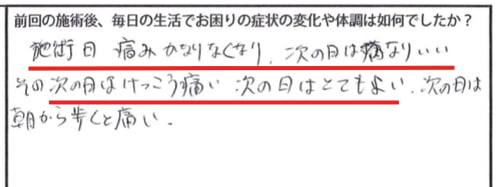 前回の施術後、毎日の生活でお困りの症状の変化や体調は如何でしたか？
施術日 痛みかなりなくなり、次の日は痛なりいい
その次の日はけっこう痛い 次の日はとてもよい、次の日は
朝から歩くと痛い。